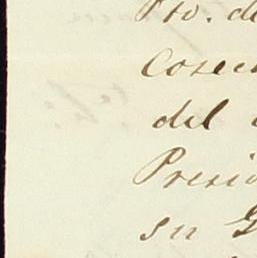 Pto. de
Cosec
del
Presid
su G